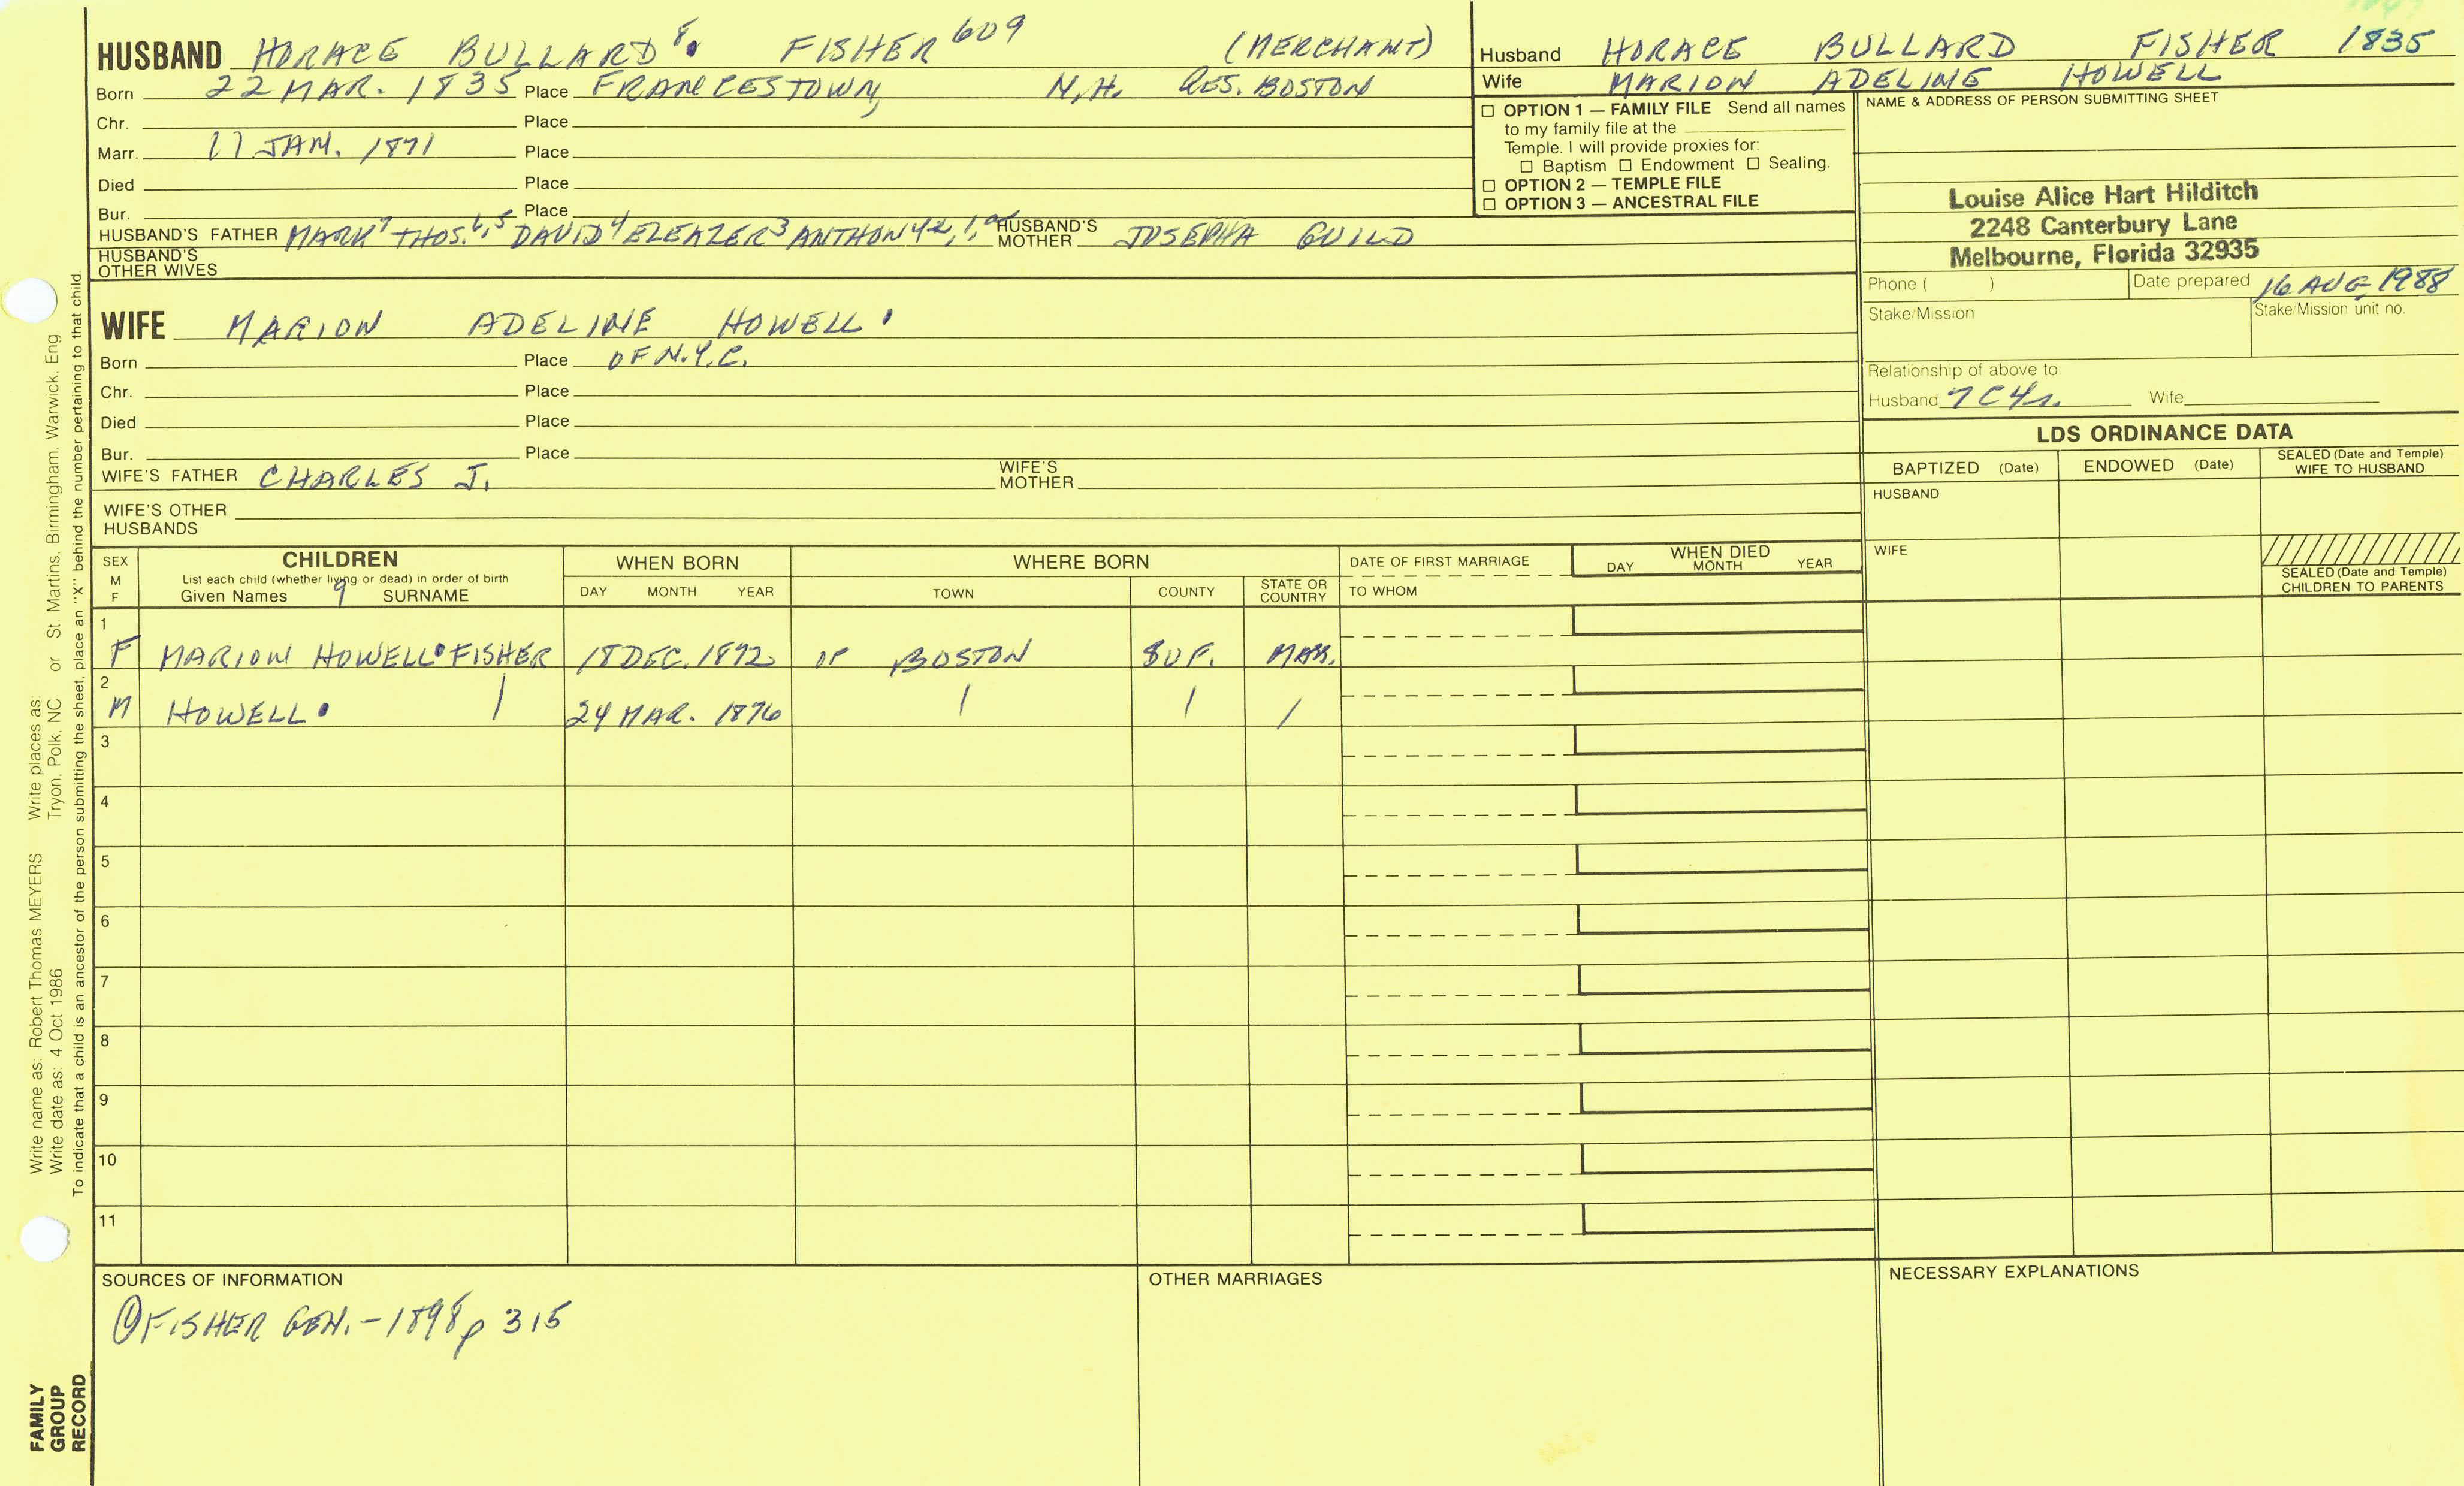 HUSBAND HORACE BULLARD⁸ FISHER 609 (MERCHANT)
Born 22 MAR. 1835 Place FRANCESTOWN, N.H. RES. BOSTON
Chr. Place
Marr. 17 JAN. 1871 Place
Died Place
Bur. Place
HUSBAND'S FATHER MARK⁷ THOS.⁶,⁵ DAVID⁴ ELEAZER³ ANTHONY²,¹ HUSBAND'S MOTHER JOSEPHA GUILD
HUSBAND'S OTHER WIVES
Husband HORACE BULLARD FISHER 1835
Wife MARION ADELINE HOWELL
☐ OPTION 1 — FAMILY FILE Send all names
to my family file at the
Temple. I will provide proxies for:
☐ Baptism ☐ Endowment ☐ Sealing.
☐ OPTION 2 — TEMPLE FILE
☐ OPTION 3 — ANCESTRAL FILE
NAME & ADDRESS OF PERSON SUBMITTING SHEET
Louise Alice Hart Hilditch
2248 Canterbury Lane
Melbourne, Florida 32935
Phone ( ) Date prepared 16 AUG 1988
Stake/Mission Stake/Mission unit no.
Relationship of above to:
Husband 7C4r. Wife
WIFE MARION ADELINE HOWELL
Born Place OF N.Y.C.
Chr. Place
Died Place
Bur. Place
WIFE'S FATHER CHARLES J. WIFE'S MOTHER
WIFE'S OTHER HUSBANDS
LDS ORDINANCE DATA
BAPTIZED (Date) ENDOWED (Date) SEALED (Date and Temple) WIFE TO HUSBAND
HUSBAND
WIFE
SEALED (Date and Temple) CHILDREN TO PARENTS
SEX M F CHILDREN WHEN BORN WHERE BORN DATE OF FIRST MARRIAGE WHEN DIED
List each child (whether living or dead) in order of birth DAY MONTH YEAR
Given Names 9 SURNAME DAY MONTH YEAR TOWN COUNTY STATE OR COUNTRY TO WHOM
1
F MARION HOWELL FISHER 18 DEC. 1872 OF BOSTON SUF. MASS.
2
M HOWELL 24 MAR. 1876
3
4
5
6
7
8
9
10
11
SOURCES OF INFORMATION
① FISHER GEN. - 1898 p 315
OTHER MARRIAGES
NECESSARY EXPLANATIONS
Write name as: Robert Thomas MEYERS Write places as:
Write date as: 4 Oct 1986 Tryon, Polk, NC or St. Martins, Birmingham, Warwick, Eng
To indicate that a child is an ancestor of the person submitting the sheet, place an "X" behind the number pertaining to that child.
FAMILY
GROUP
RECORD